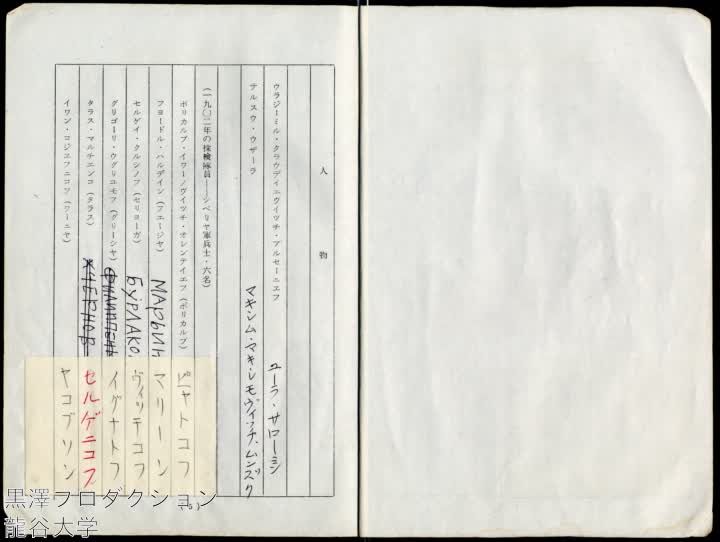 人物
ウラジーミル・クラウディエヴィッチ・アルセーニエフ ユーラ・サローミン
デルスウ・ウザーラ マキシム・マキシモヴィッチ・ムンズク
(一九〇二年の探検隊員——シベリヤ軍兵士・六名)
ポリカルプ・イワーノヴィッチ・オレンテイエフ(ポリカルプ) ピャトコフ
フョードル・ハルデイン(フエージャ) МАРЬИН マリーン
セルゲイ・クルシノフ(セリョーガ) БУРЛАКО ヴィッテコフ
グリゴーリ・ウグリユモフ(グリーシャ) イグナトフ
タラス・マルチエンコ(タラス) ЧЕРНОВ セルゲニコフ
イワン・コジエフニコフ(ワーニャ) ヤコブソン
(5)
黒澤プロダクション
龍谷大学